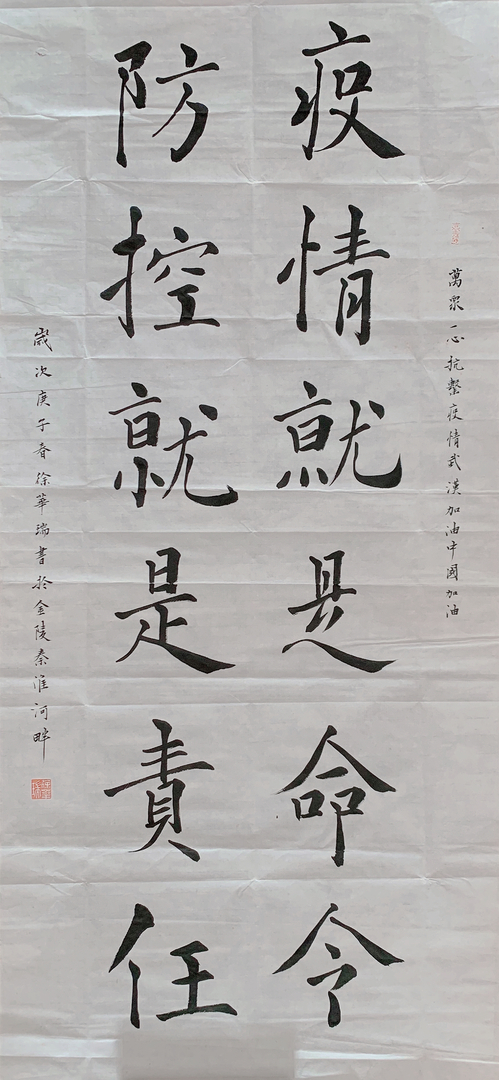 萬眾一心抗擊疫情武漢加油中國加油
疫情就是命令
防控就是責任
歲次庚子春徐華瑞書於金陵秦淮河畔